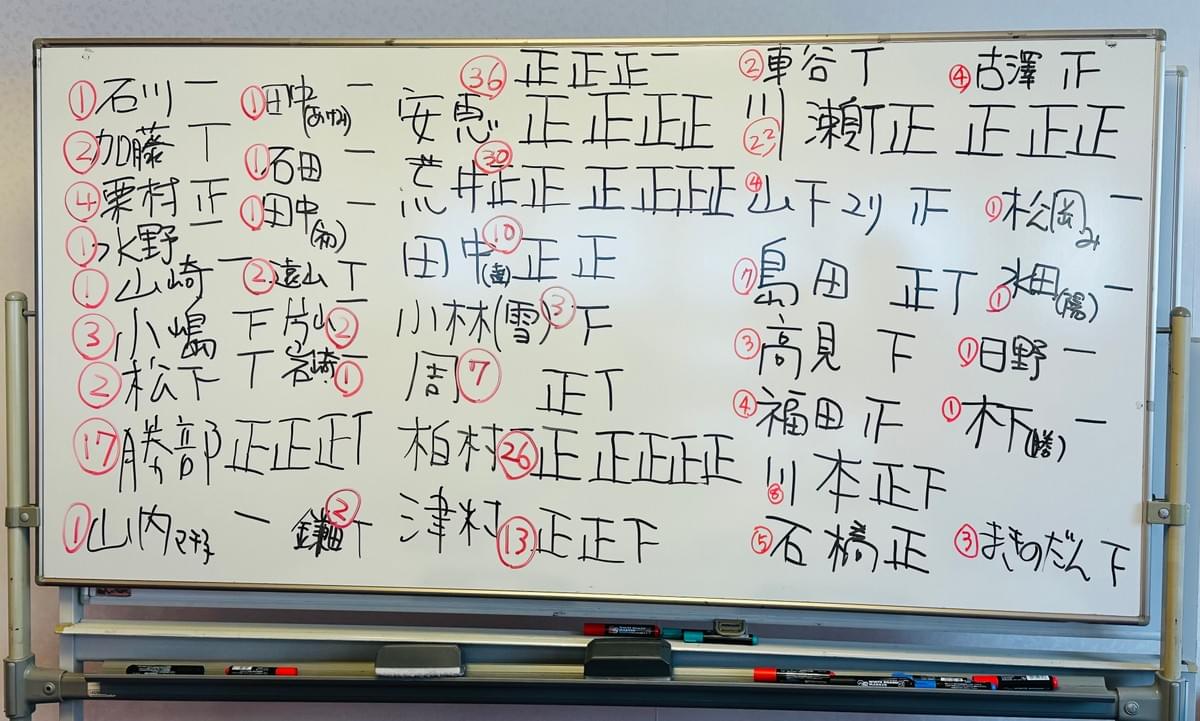 ①石川 一
②加藤 丅
④栗村 正
①水野 一
①山崎 一
③小嶋 下
②松下 丅
⑰勝部 正正正丅
①山内マチ子 一
①田中(あけみ) 一
①石田 一
①田中(初) 一
②遠山 丅
片山② 丅
岩崎① 一
鎌田② 丅
㊱ 正正正一
安恵 正正正正
荒井㉚ 正正正正正正
田中(直)⑩ 正正
小林(雪)③ 下
周⑦ 正丅
柏村㉖ 正正正正正
津村⑬ 正正下
②車谷 丅
川瀬㉒ 丅正正正正
④山下ユリ 正
⑦島田 正丅
③高見 下
④福田 正
川本⑧ 正下
⑤石橋 正
④古澤 正
①松岡み 一
①水田(陽) 一
①日野 一
①木下(勝) 一
③まきのだん 下